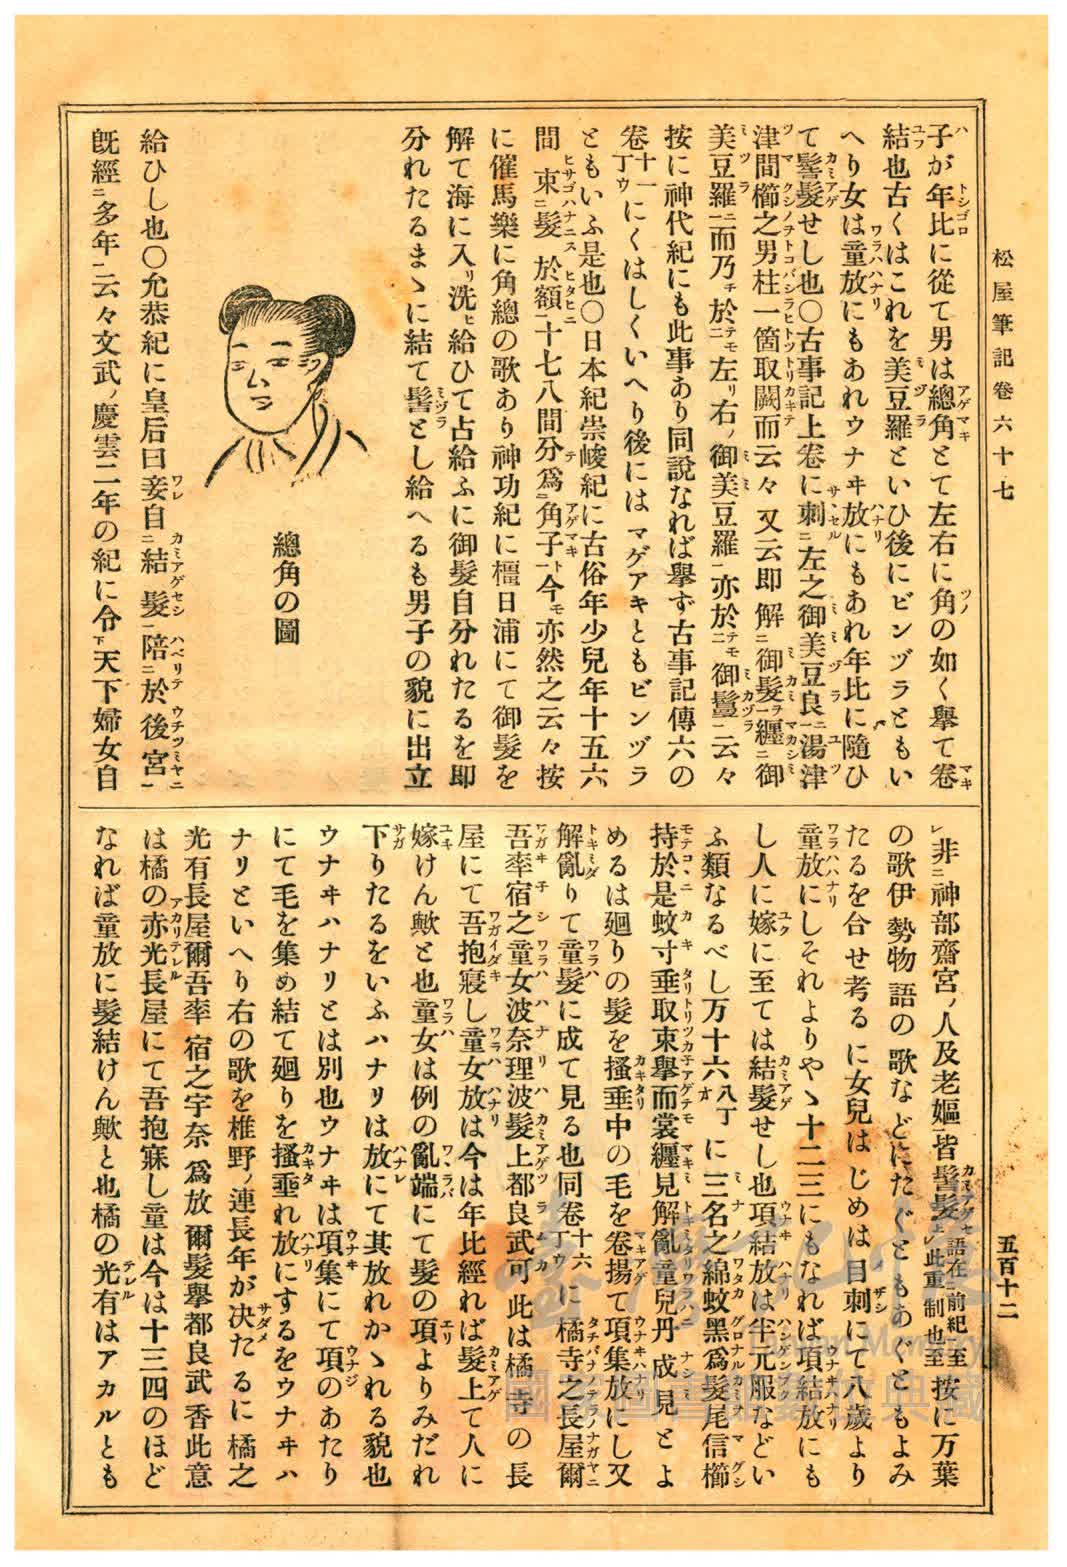 松屋筆記卷六十七
五百十二
子が年比に從て男は總角とて左右に角の如く擧て卷
結也古くはこれを美豆羅といひ後にビンヅラともい
へり女は童放にもあれウナヰ放にもあれ年比に隨ひ
て髻髮せし也〇古事記上卷に刺左之御美豆良湯津
津間櫛之男柱一箇取闕而云々又云即解御髮纒御
美豆羅而乃於左右御美豆羅亦於御鬘云々
按に神代紀にも此事あり同說なれば擧ず古事記傳六の
卷十一丁ウにくはしくいへり後にはマゲアキともビンヅラ
ともいふ是也〇日本紀崇峻紀に古俗年少兒年十五六
間束髮於額十七八間分爲角子今亦然之云々按
に催馬樂に角總の歌あり神功紀に橿日浦にて御髮を
解て海に入洗給ひて占給ふに御髮自分れたるを即
分れたるまゝに結て髻とし給へるも男子の貌に出立
總角の圖
給ひし也〇允恭紀に皇后曰妾自結髮陪於後宮
旣經多年云々文武ノ慶雲二年の紀に令天下婦女自
非神部齋宮ノ人及老嫗皆髻髮語在前紀至此重制也至按に万葉
の歌伊勢物語の歌などにたぐともあぐともよみ
たるを合せ考るに女兒はじめは目刺にて八歲より
童放にしそれよりやゝ十二三にもなれば項結放にも
し人に嫁に至ては結髮せし也項結放は半元服などい
ふ類なるべし万十六八丁オに三名之綿蚊黑爲髮尾信櫛
持於是蚊寸垂取束擧而裳纒見解亂童兒丹成見とよ
めるは廻りの髮を搔垂中の毛を卷揚て項集放にし又
解亂りて童髮に成て見る也同卷十六丁ウに橘寺之長屋爾
吾率宿之童女波奈理波髮上都良武可此は橘寺の長
屋にて吾抱寢し童女放は今は年比經れば髮上て人に
嫁けん歟と也童女は例の亂端にて髮の項よりみだれ
下りたるをいふハナリは放にて其放れかゝれる貌也
ウナヰハナリとは別也ウナヰは項集にて項のあたり
にて毛を集め結て廻りを搔垂れ放にするをウナヰハ
ナリといへり右の歌を椎野ノ連長年が決たるに橘之
光有長屋爾吾率宿之宇奈爲放爾髮擧都良武香此意
は橘の赤光長屋にて吾抱寐し童は今は十三四のほど
なれば童放に髮結けん歟と也橘の光有はアカルとも
臺灣記憶
Taiwan Memory
國家圖書館數位典藏